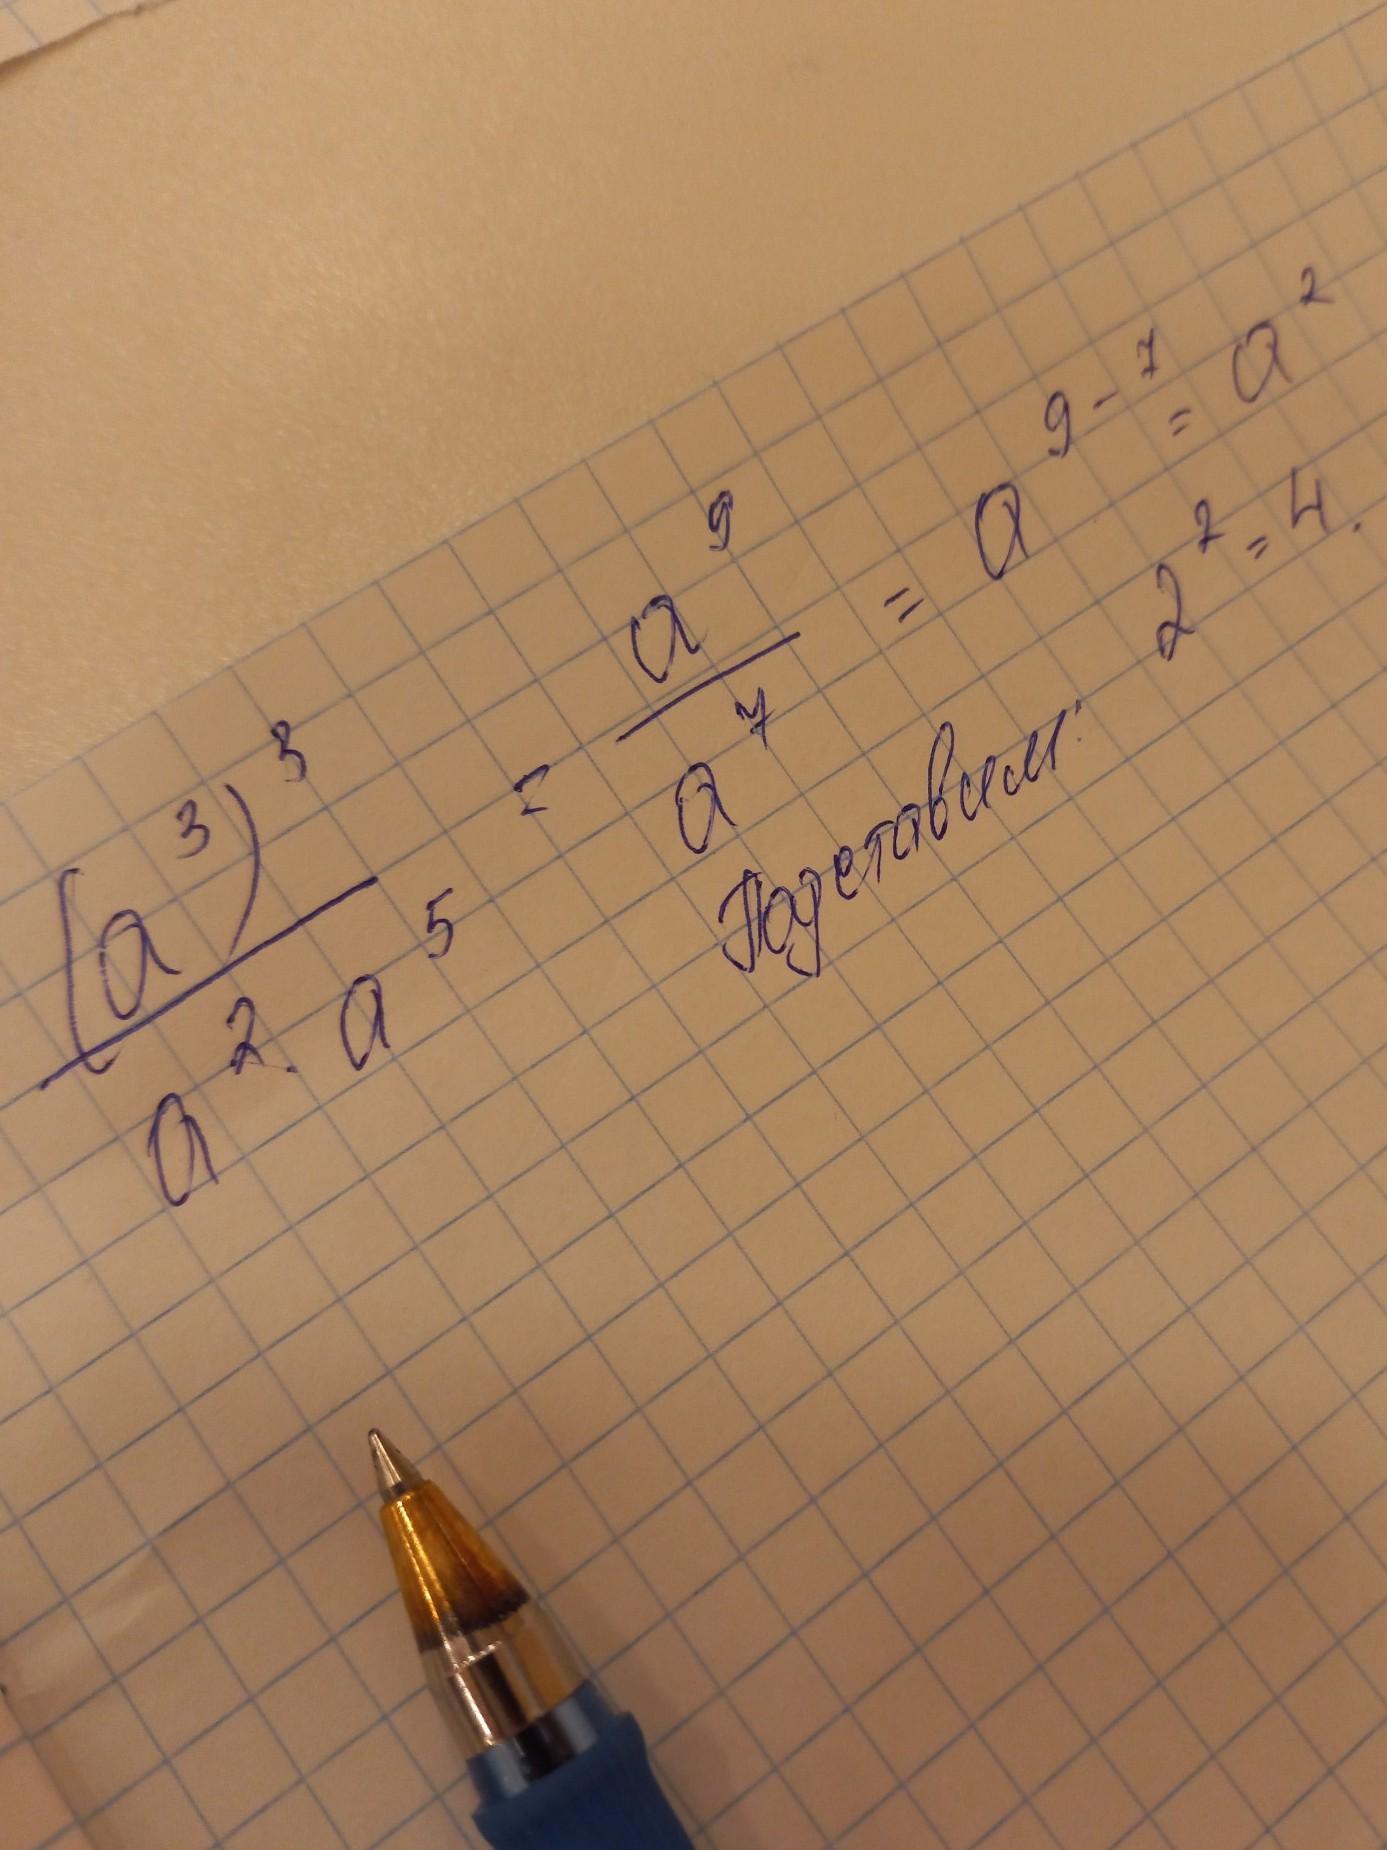 (a³)³ / a² · a⁵ = a⁹ / a⁷ = a⁹⁻⁷ = a²
Подставим: 2² = 4.